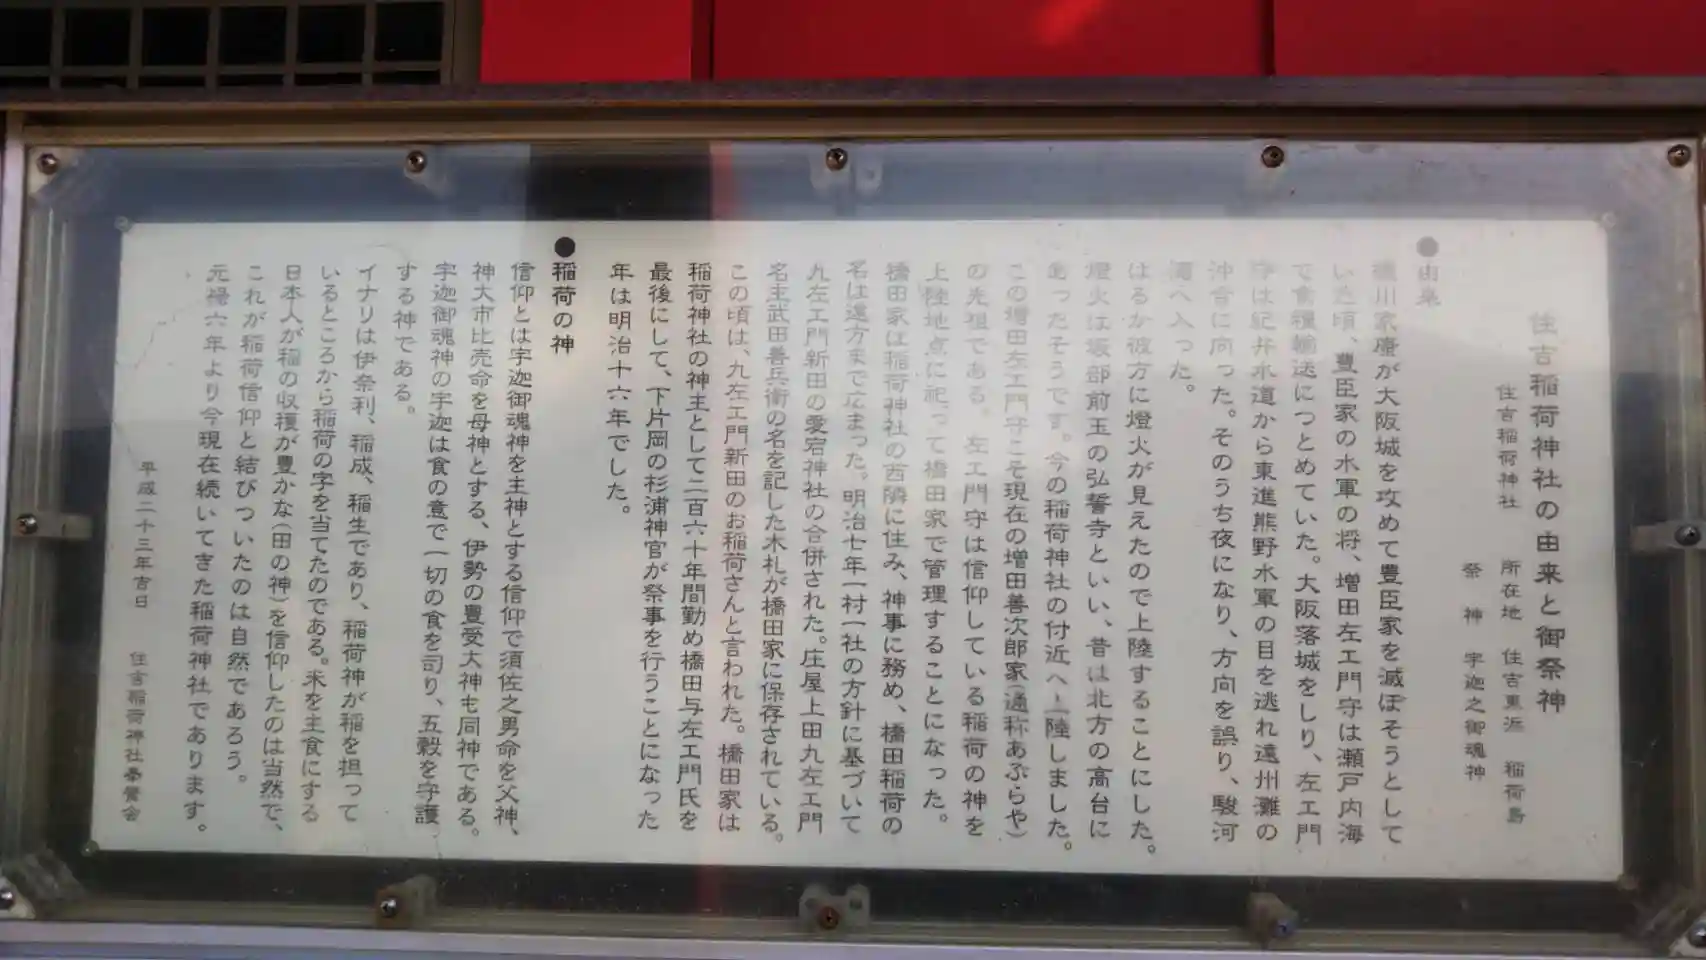 住吉稲荷神社の由来と御祭神
住吉稲荷神社 所在地 住吉東浜 稲荷島
祭神 宇迦之御魂神
●由来
徳川家康が大阪城を攻めて豊臣家を滅ぼそうとして
い頃、豊臣家の水軍の将、増田左エ門守は瀬戸内海
で食糧輸送につとめていた。大阪落城をしり、左エ門
守は紀井水道から東進熊野水軍の目を逃れ遠州灘の
沖合に向った。そのうち夜になり、方向を誤り、駿河
湾へ入った。
はるか彼方に燈火が見えたので上陸することにした。
燈火は坂部前玉の弘誓寺といい、昔は北方の高台に
あったそうです。今の稲荷神社の付近へ上陸しました。
この増田左エ門守こそ現在の増田善次郎家(通称あぶらや)
の先祖である。左エ門守は信仰している稲荷の神を
上陸地点に祀って橋田家で管理することになった。
橋田家は稲荷神社の西隣に住み、神事に務め、橋田稲荷の
名は遠方まで広まった。明治七年一村一社の方針に基づいて
九左エ門新田の愛宕神社の合併された。庄屋上田九左エ門
名主武田善兵衛の名を記した木札が橋田家に保存されている。
この頃は、九左エ門新田のお稲荷さんと言われた。橋田家は
稲荷神社の神主として二百六十年間勤め橋田与左エ門氏を
最後にして、下片岡の杉浦神官が祭事を行うことになった
年は明治十六年でした。
●稲荷の神
信仰とは宇迦御魂神を主神とする信仰で須佐之男命を父神、
神大市比売命を母神とする、伊勢の豊受大神も同神である。
宇迦御魂神の宇迦は食の意で一切の食を司り、五穀を守護
する神である。
イナリは伊奈利、稲成、稲生であり、稲荷神が稲を担って
いるところから稲荷の字を当てたのである。米を主食にする
日本人が稲の収穫が豊かな(田の神)を信仰したのは当然で、
これが稲荷信仰と結びついたのは自然であろう。
元禄六年より今現在続いてきた稲荷神社であります。
平成二十三年吉日 住吉稲荷神社奉賛会